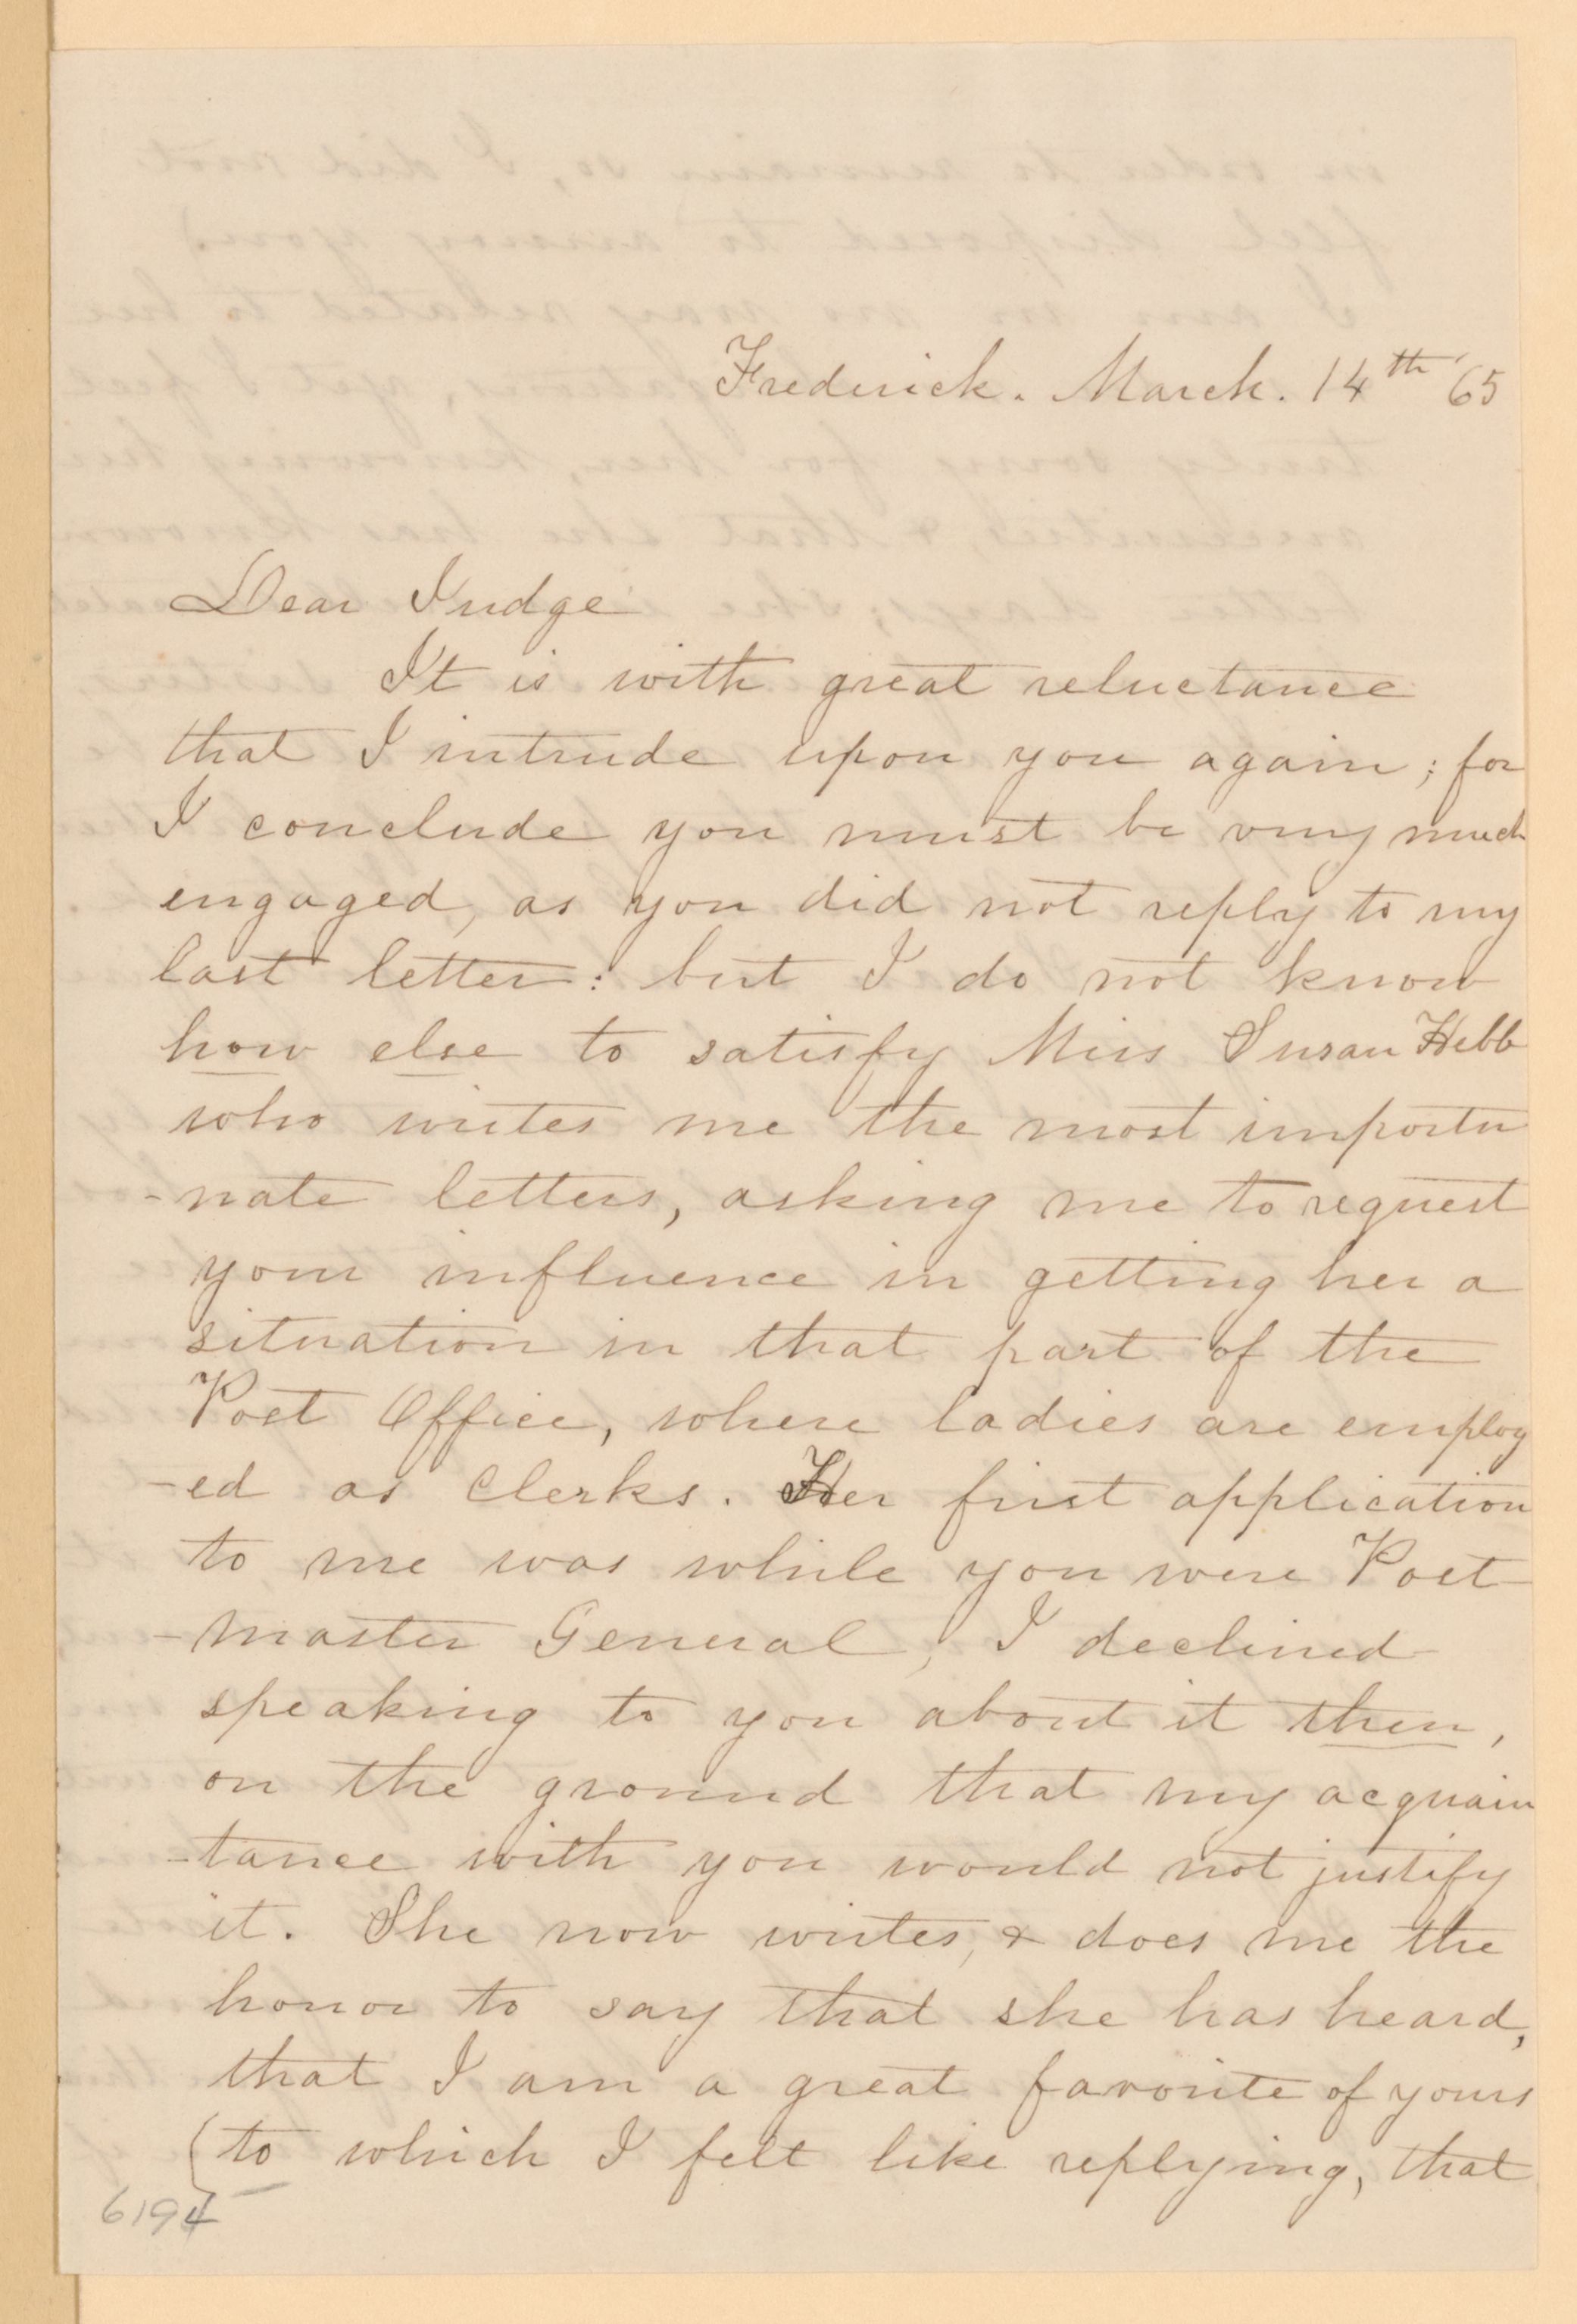 Frederick. March. 14th '65
Dear Judge
It is with great reluctance
that I intrude upon you again; for
I conclude you must be very much
engaged, as you did not reply to my
last letter: but I do not know
how else to satisfy Miss Susan Hebb
who writes me the most importu
-nate letters, asking me to request
your influence in getting her a
situation in that part of the
Post Office, where ladies are employ
-ed as Clerks. Her first application
to me was while you were Post
-master General, I declined
speaking to you about it then,
on the ground that my acquain
-tance with you would not justify
it. She now writes, & does me the
honor to say that she has heard,
that I am a great favorite of yours
(to which I felt like replying, that
6194